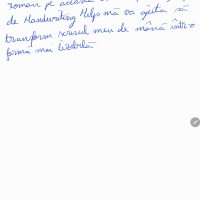 roman pe această
de Handwriting Help mă va ajuta să
transform scrisul meu de mână într-o
formă mai lizibilă